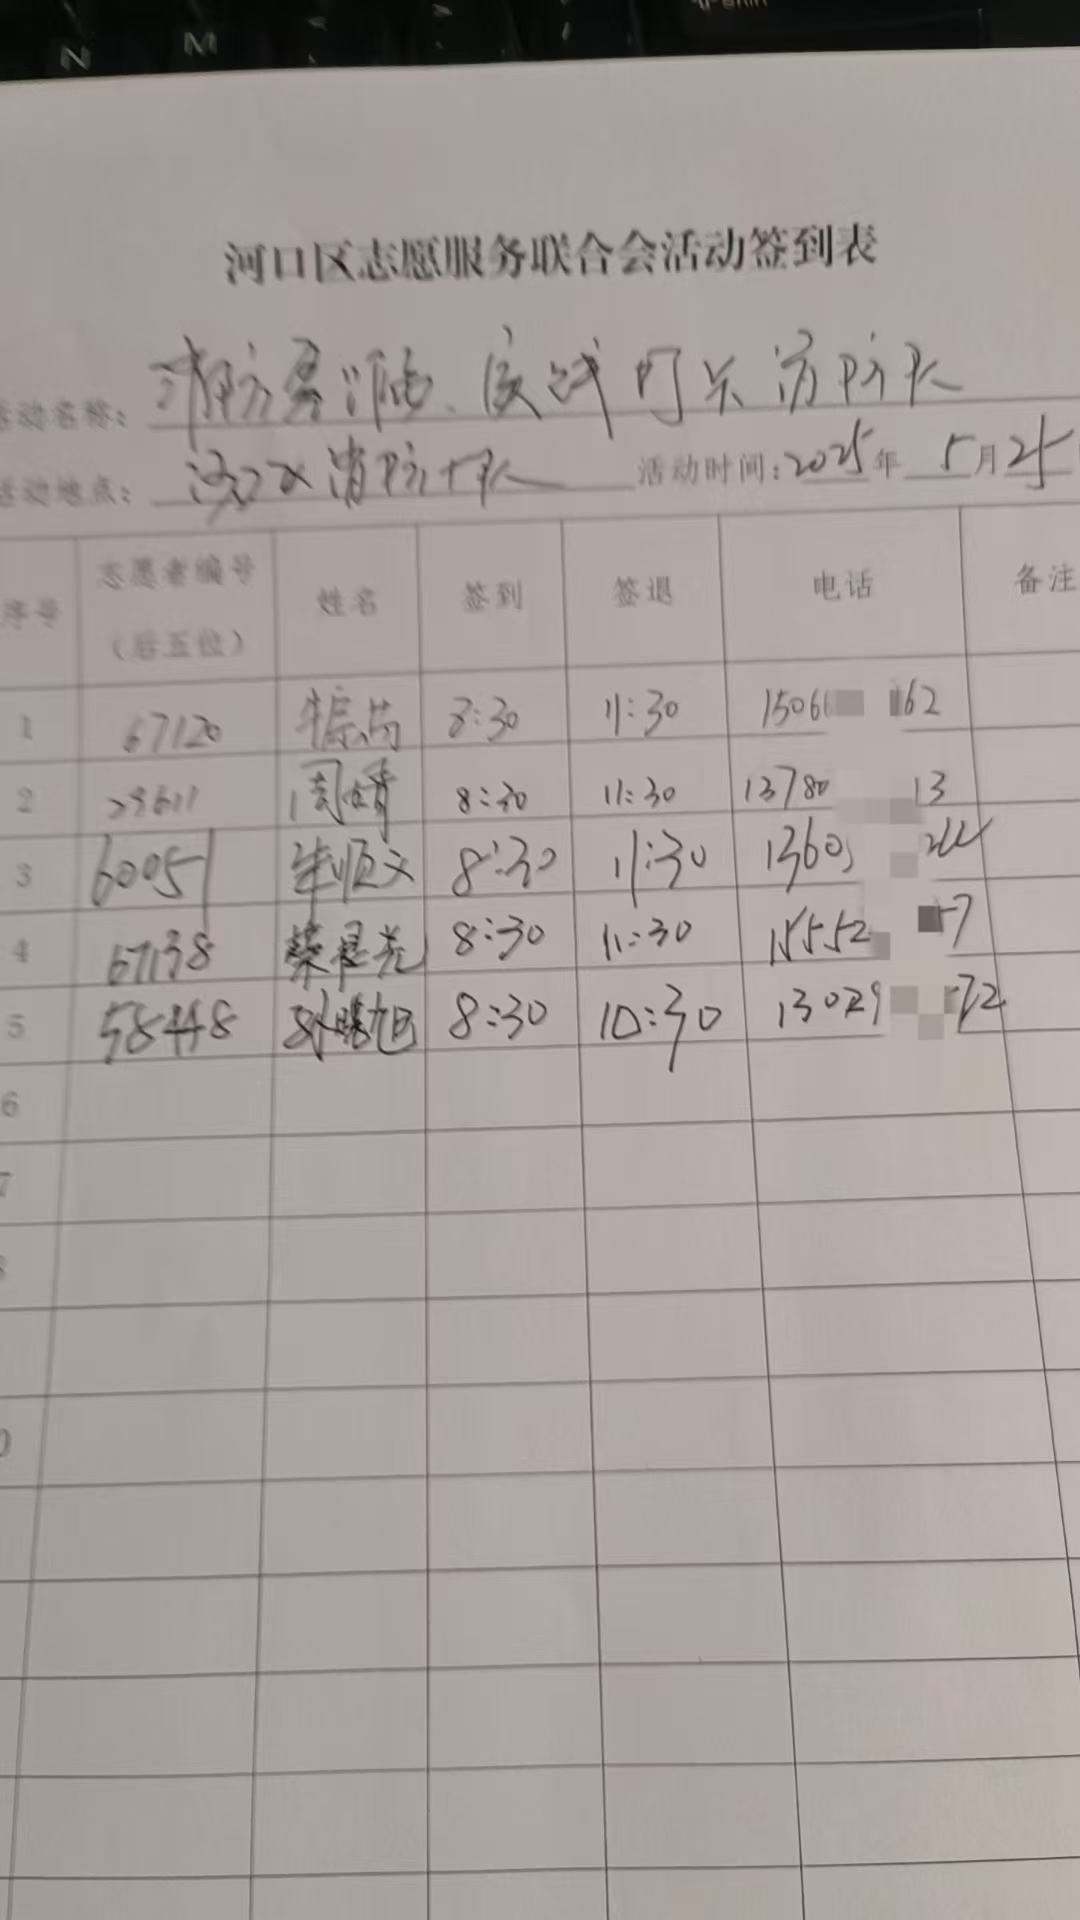 N M
河口区志愿服务联合会活动签到表
活动名称: 消防
活动地点: 消防大队 活动时间:2025年 5月25
序号 志愿者编号（后五位） 姓名 签到 签退 电话 备注
1 67120 8:30 11:30 1506 162
2 29611 周婧 8:30 11:30 13780 13
3 60051 牟顺文 8:30 11:30 1360
4 67138 8:30 11:30 15552 57
5 58448 孙晓旭 8:30 10:30 13029 72
6
7